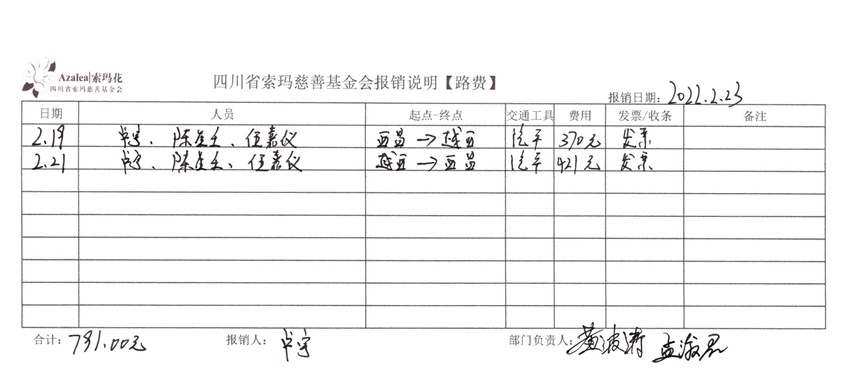 Azalea|索玛花
四川省索玛慈善基金会
四川省索玛慈善基金会报销说明【路费】
报销日期：2022.2.23
日期 人员 起点-终点 交通工具 费用 发票/收条 备注
2.19 、陈 、伍嘉仪 西昌→越西 汽车 370元 发票
2.21 、陈 、伍嘉仪 越西→西昌 汽车 421元 发票
合计：791.00元 报销人： 部门负责人：黄波涛 孟